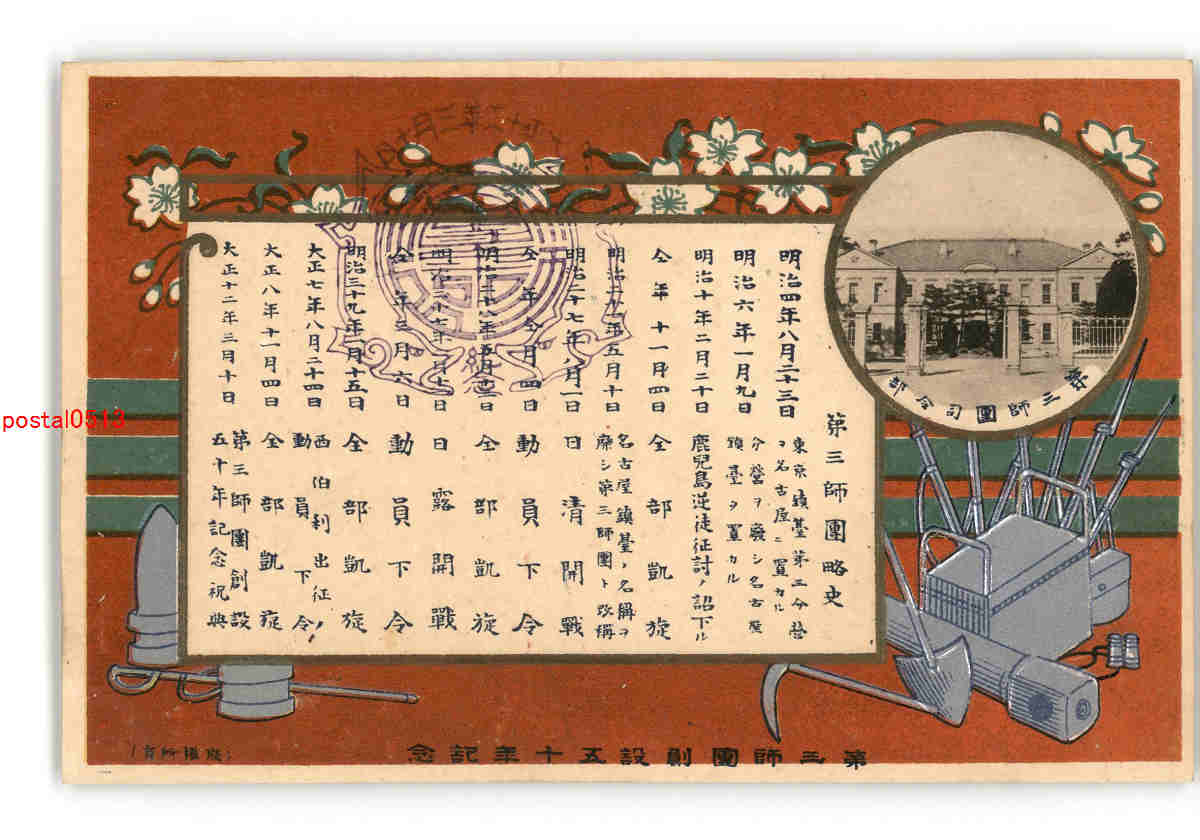 第三師團司令部
第三師團略史
明治四年八月二十三日 東京鎮基第三分營ヲ名古屋ニ置カル
明治六年一月九日 分營ヲ廢シ名古屋鎮臺ヲ置カル
明治十年二月二十日 鹿兒島逆徒征討ノ詔下ル
仝年十一月四日 全部凱旋
明治二十一年五月十日 名古屋鎮臺ノ名稱ヲ廢シ第三師團ト改稱
明治二十七年八月一日 清開戰
仝年仝月四日 動員下令
明治二十八年五月 日 全部凱旋
明治三十七年二月十日 露開戰
仝年三月六日 動員下令
明治三十九年一月十五日 全部凱旋
大正七年八月二十四日 西伯利出征ノ動員下令
大正八年十一月四日 全部凱旋
大正十二年三月十日 第三師團創設五十年記念祝典
第三師團創設五十年記念
(版權所有)
postal0513